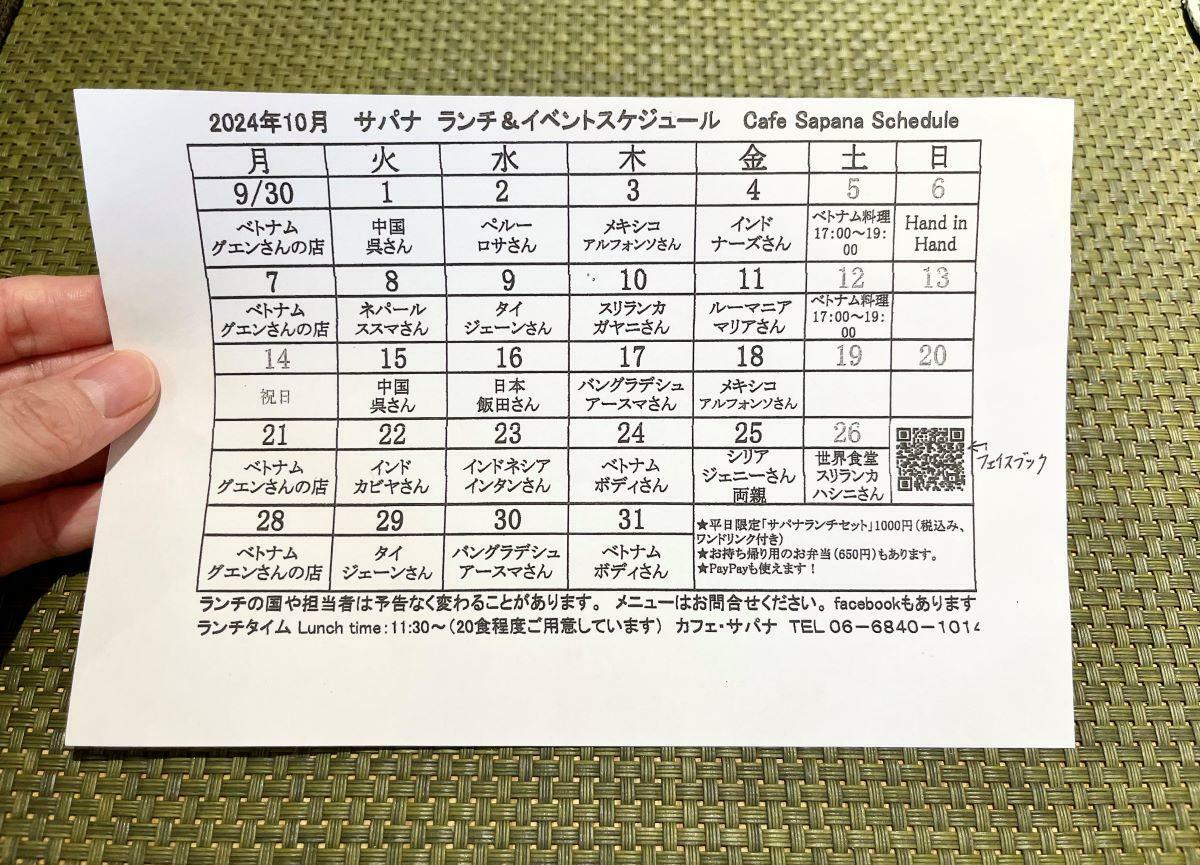 2024年10月 サパナ ランチ＆イベントスケジュール Cafe Sapana Schedule
月 火 水 木 金 土 日
9/30 1 2 3 4 5 6
ベトナム
グエンさんの店
中国
呉さん
ペルー
ロサさん
メキシコ
アルフォンソさん
インド
ナーズさん
ベトナム料理
17:00～19:
00
Hand in
Hand
7 8 9 10 11 12 13
ベトナム
グエンさんの店
ネパール
ススマさん
タイ
ジェーンさん
スリランカ
ガヤニさん
ルーマニア
マリアさん
ベトナム料理
17:00～19:
00
14 15 16 17 18 19 20
祝日
中国
呉さん
日本
飯田さん
バングラデシュ
アースマさん
メキシコ
アルフォンソさん
21 22 23 24 25 26
ベトナム
グエンさんの店
インド
カビヤさん
インドネシア
インタンさん
ベトナム
ボディさん
シリア
ジェニーさん
両親
世界食堂
スリランカ
ハシニさん
←フェイスブック
28 29 30 31
ベトナム
グエンさんの店
タイ
ジェーンさん
バングラデシュ
アースマさん
ベトナム
ボディさん
★平日限定「サパナランチセット」1000円（税込み、
ワンドリンク付き）
★お持ち帰り用のお弁当（650円）もあります。
★PayPayも使えます！
ランチの国や担当者は予告なく変わることがあります。 メニューはお問合せください。 facebookもあります
ランチタイム Lunch time：11:30～（20食程度ご用意しています） カフェ・サパナ TEL 06－6840－1014